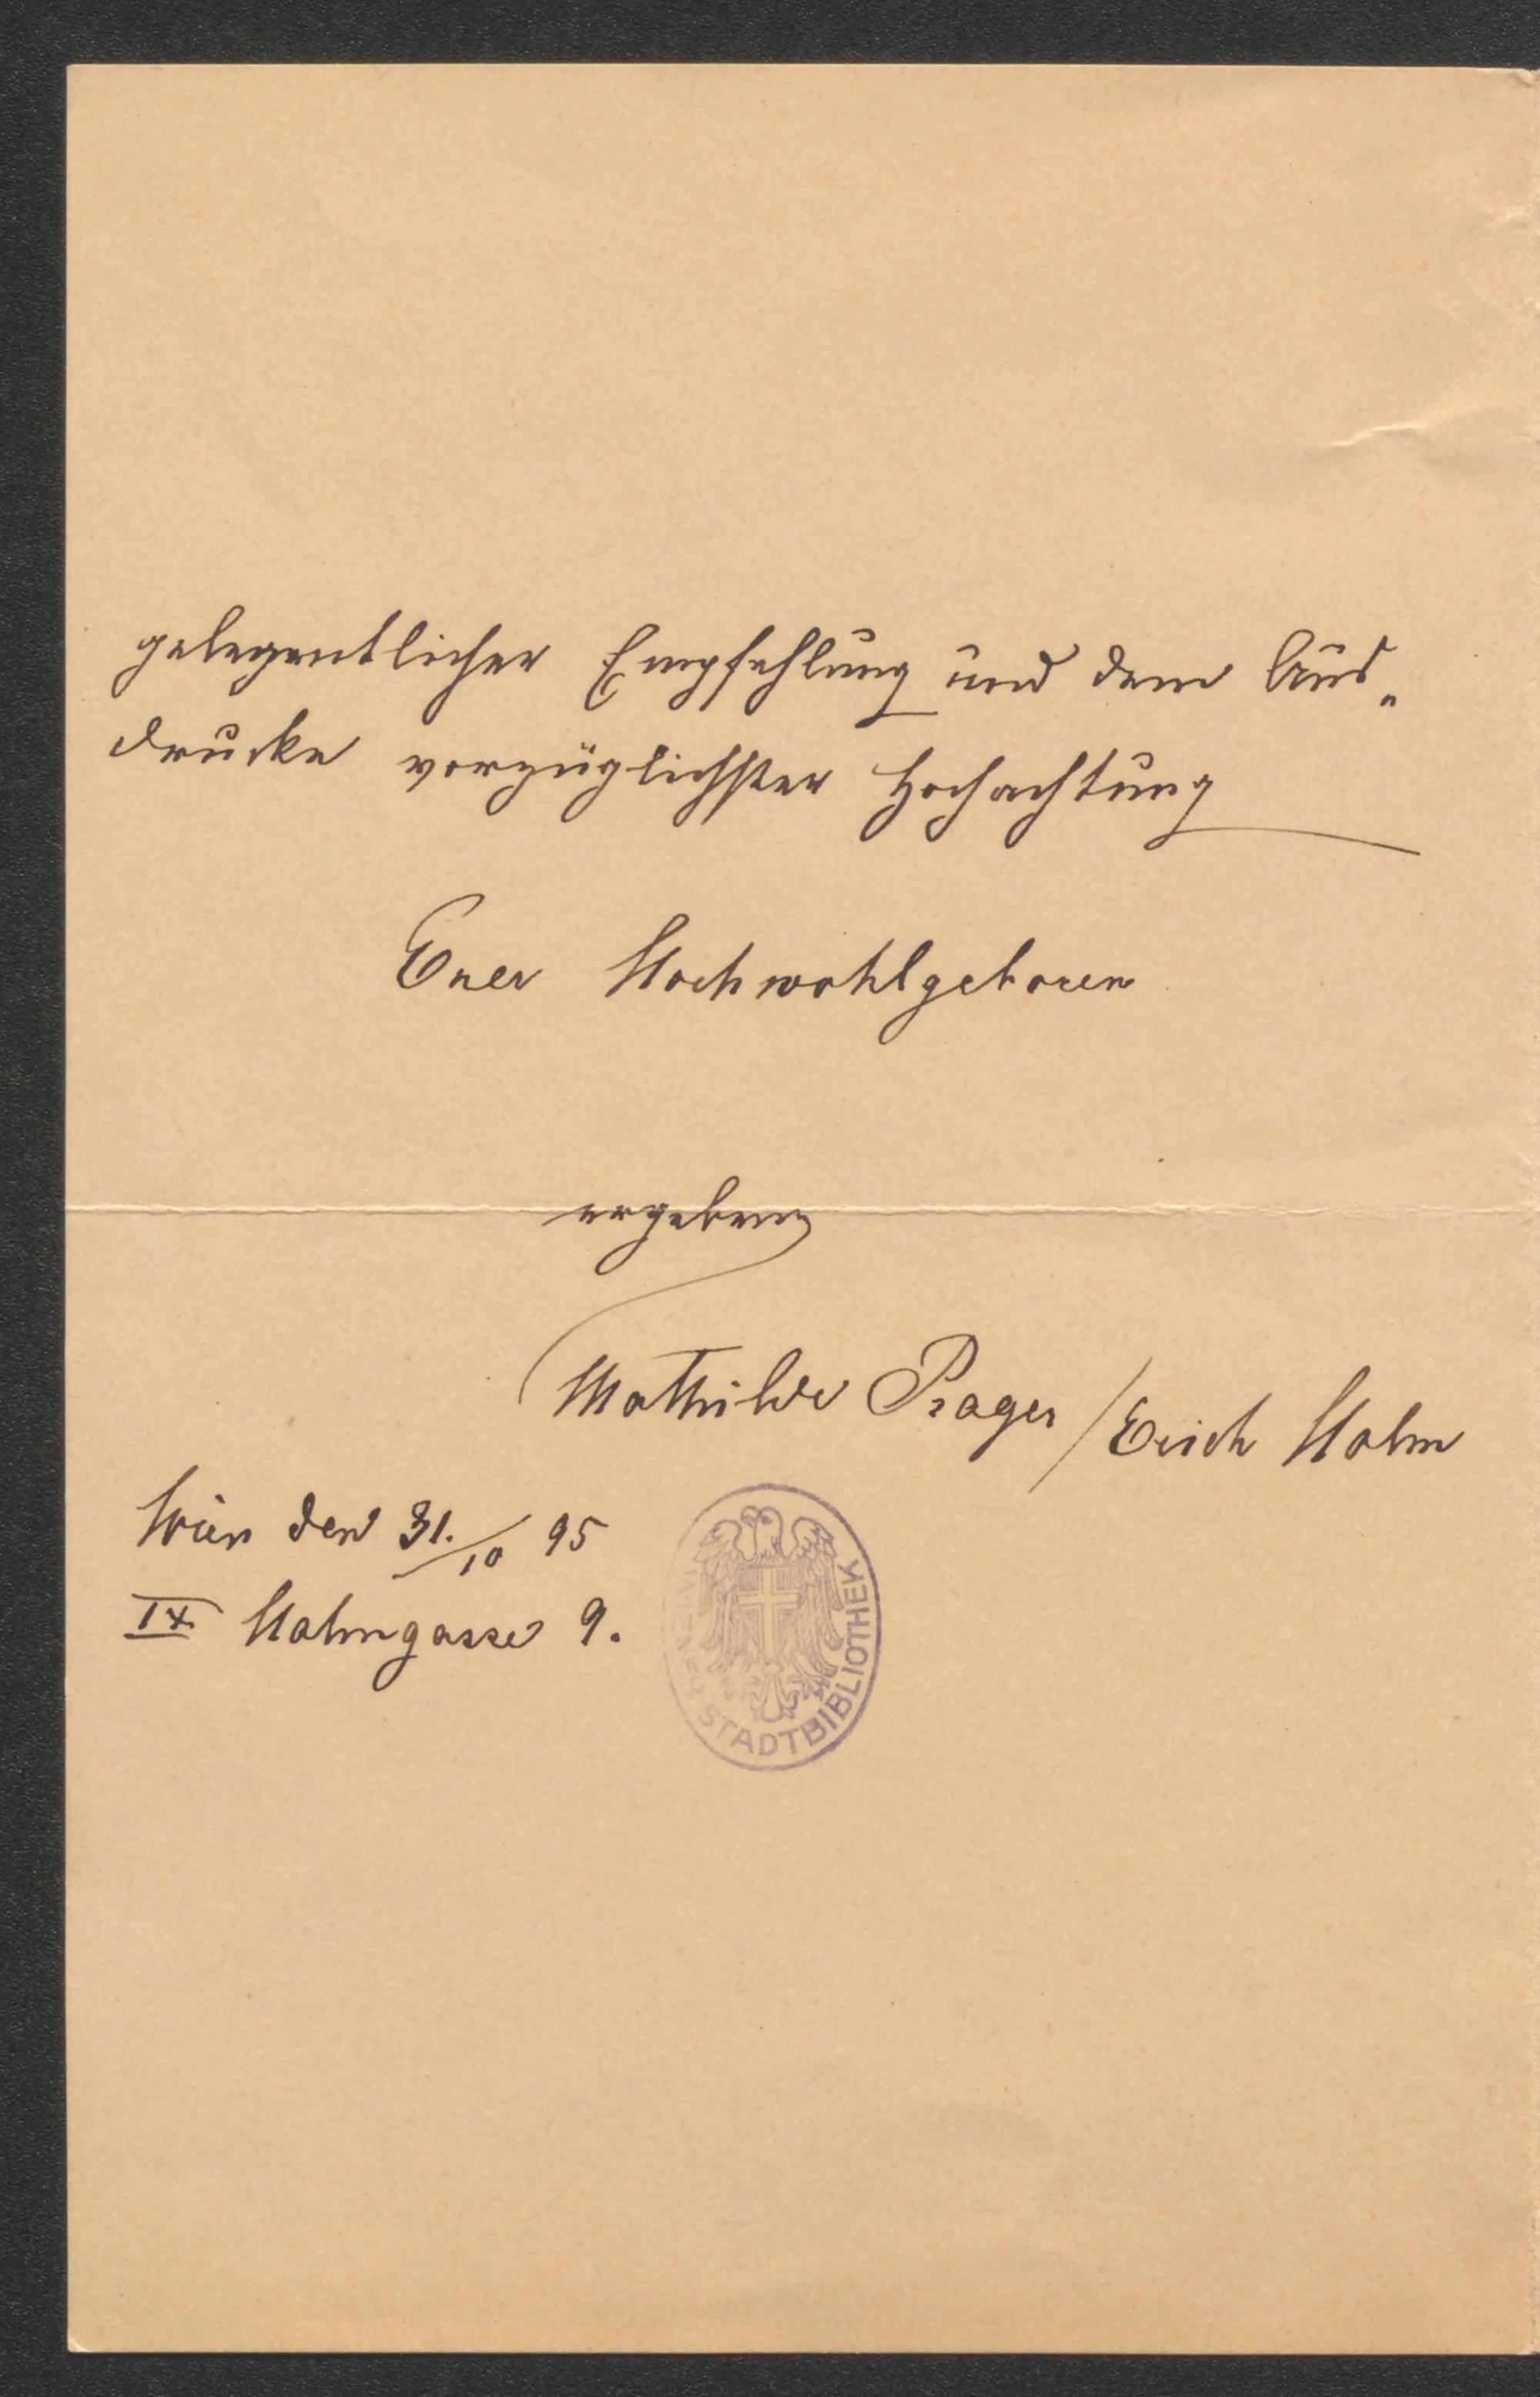 gelegentlicher Empfehlung und dem Aus-
drucke vorzüglichster Hochachtung
Euer Hochwohlgeboren
ergeben
Mathilde Prager / Erich Holm
Wien den 31./10 95
IX Hahngasse 9.
STADTBIBLIOTHEK